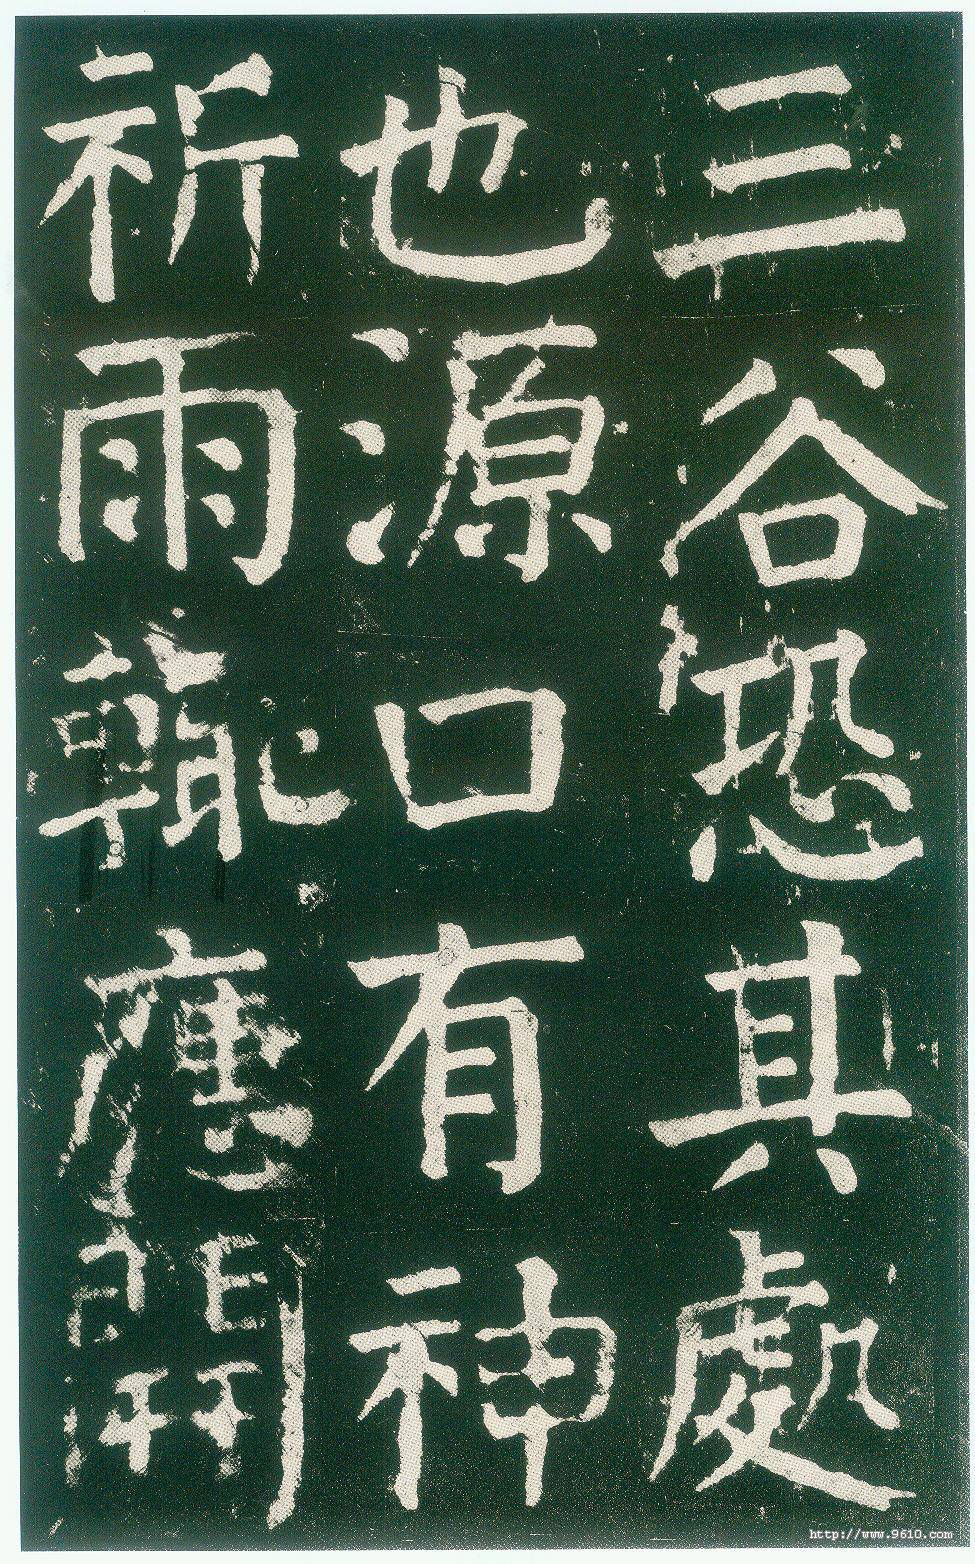 三谷恐其處
也源口有神
祈雨輒應開
http://www.9610.com